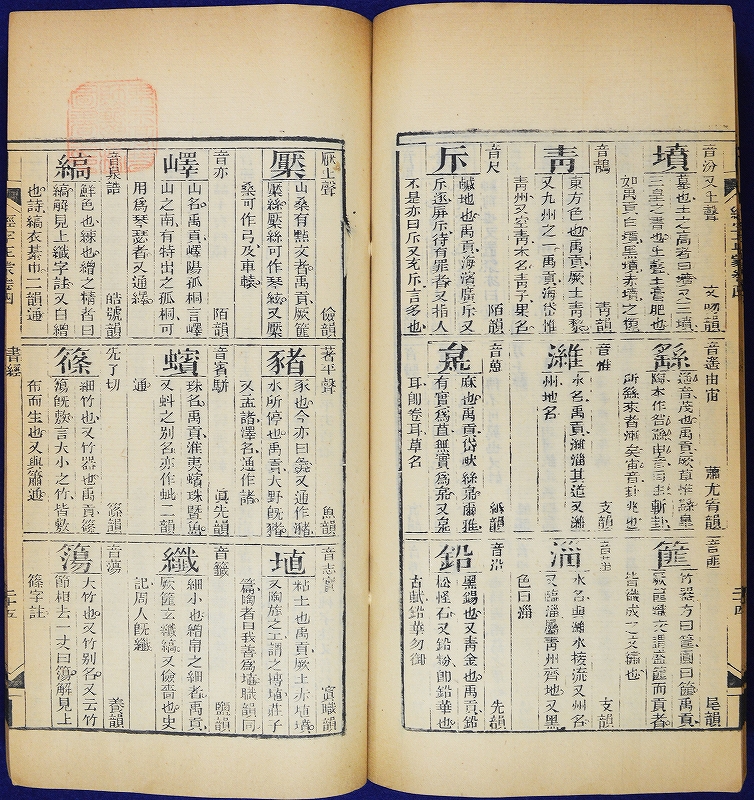 音汾又上聲
文吻韻
墳
墓也土之高者曰墳又三墳
三皇之書也上聲土膏肥也
如禹貢白墳黑墳赤墳之類
音鶄
青韻
青
東方色也禹貢厥土青黎
又九州之一禹貢海岱惟
青州又空青木名青子果名
音尺
陌韻
斥
鹹地也禹貢海濱廣斥又
斥逐屏斥待有罪者又指人
不是亦曰斥又充斥言多也
音遙由宙
蕭尤宥韻
繇
音惟
支韻
濰
水名禹貢濰淄其道又濰
州地名
紙韻
枲
麻也禹貢岱畎絲枲爾雅
有實爲苴無實爲枲又枲
耳卽卷耳草名
音匪
尾韻
篚
竹器方曰筐圓曰篚禹貢
支韻
淄
水名與濰水接流又州名
又臨淄屬青州齊地又黑
色曰淄
音沿
先韻
鉛
黑錫也又青金也禹貢鉛
松怪石又鉛粉卽鉛華也
古賦鉛華勿御
厭上聲
儉韻
檿
山桑有點文者禹貢厥篚
檿絲檿絲可作琴絃又檿
桑可作弓及車轅
音亦
陌韻
嶧
山名禹貢嶧陽孤桐言嶧
山之南有特出之孤桐可
用爲琴瑟者又通繹
音杲誥
皓號韻
縞
鮮色也練也繒之精者曰
縞解見上纖字註又白繒
也詩縞衣綦巾二韻通
著平聲
魚韻
豬
豕也今亦曰彘又通作瀦
水所停也禹貢大野既豬
又孟諸澤名通作諸
音賓駢
眞先韻
蠙
珠名禹貢淮夷蠙珠暨魚
又蚌之別名亦作蚍二韻
通
先了切
篠韻
篠
細竹也又竹器也禹貢篠
簜旣敷言大小之竹皆敷
布而生也又與簫通
音志寔
寘職韻
埴
粘土也禹貢厥土赤埴墳
又陶旅之工謂之摶埴莊子
篇陶者曰我善爲埴職韻同
音籤
鹽韻
纖
細小也繒帛之細者禹貢
厥篚玄纖縞又儉嗇也史
記周人旣纖
音蕩
養韻
簜
大竹也又竹別名又云竹
節相去一丈曰簜解見上
篠字註
書經
二十五